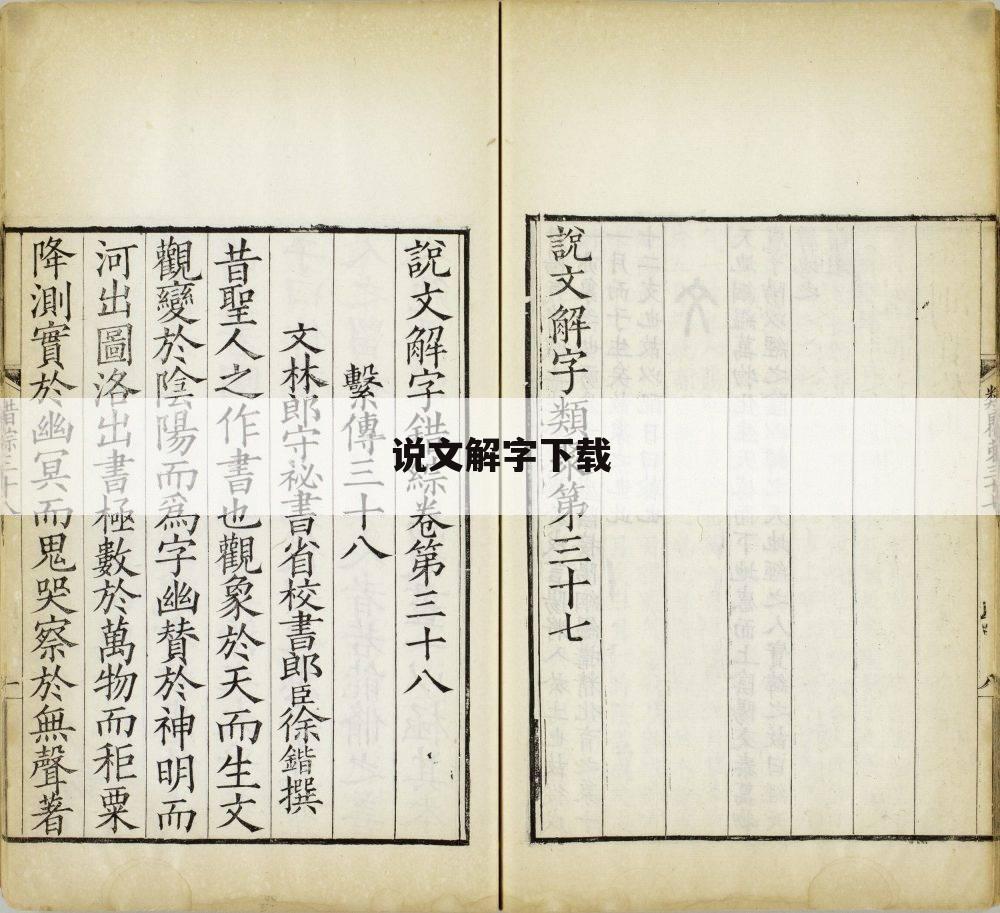 說文解字類聚第三十七
說文解字錯綜卷第三十八
繫傳三十八
文林郎守祕書省校書郎臣徐鍇撰
昔聖人之作書也觀象於天而生文
觀變於陰陽而爲字幽贊於神明而
河出圖洛出書極數於萬物而秬粟
降測實於幽冥而鬼哭察於無聲著
说文解字下载